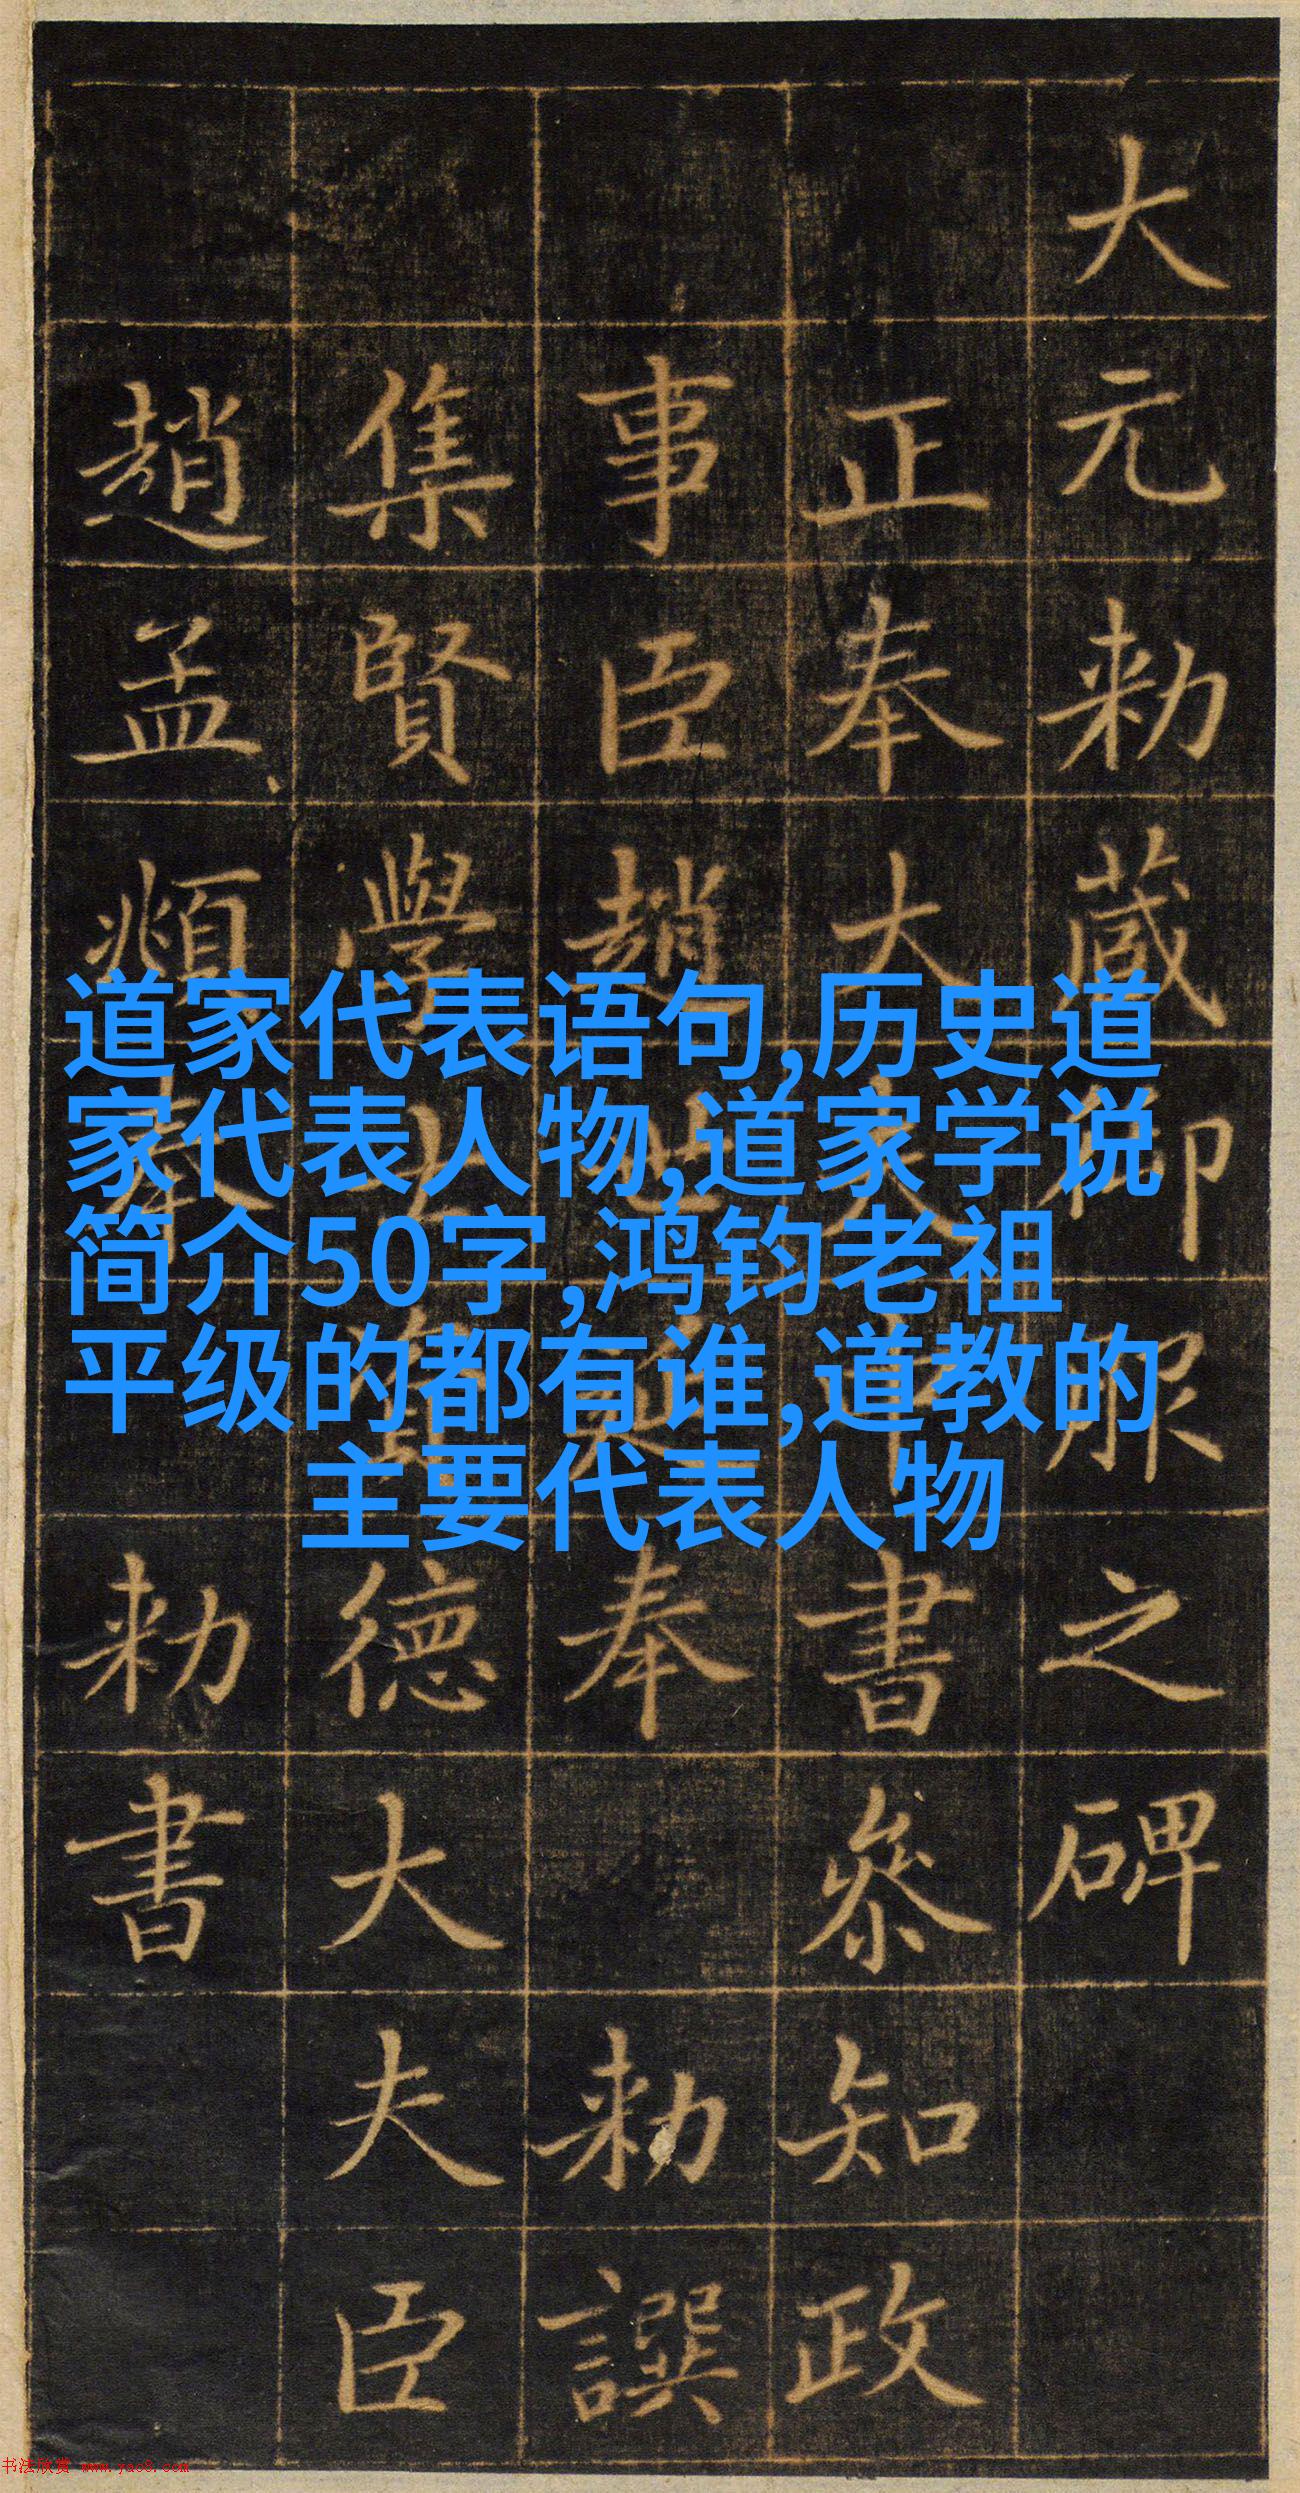 大元勅藏御服之碑
正奉大夫中書叅知政
事臣趙世延奉勅譔
集賢學士資德大夫臣
趙孟頫奉勅書
道家代表语句,历史道
家代表人物,道家学说
简介50字,鸿钧老祖
平级的都有谁,道教的
主要代表人物
书法欣赏 www.yac8.com